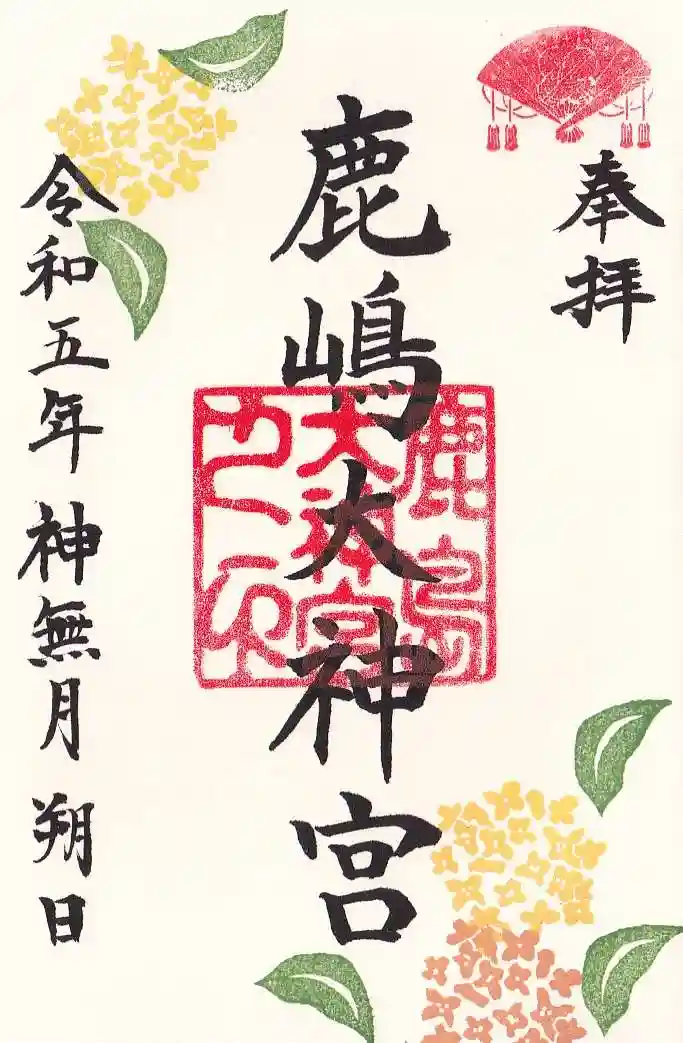 奉拝
鹿嶋大神宮
鹿島
大神宮
令和五年 神無月 朔日